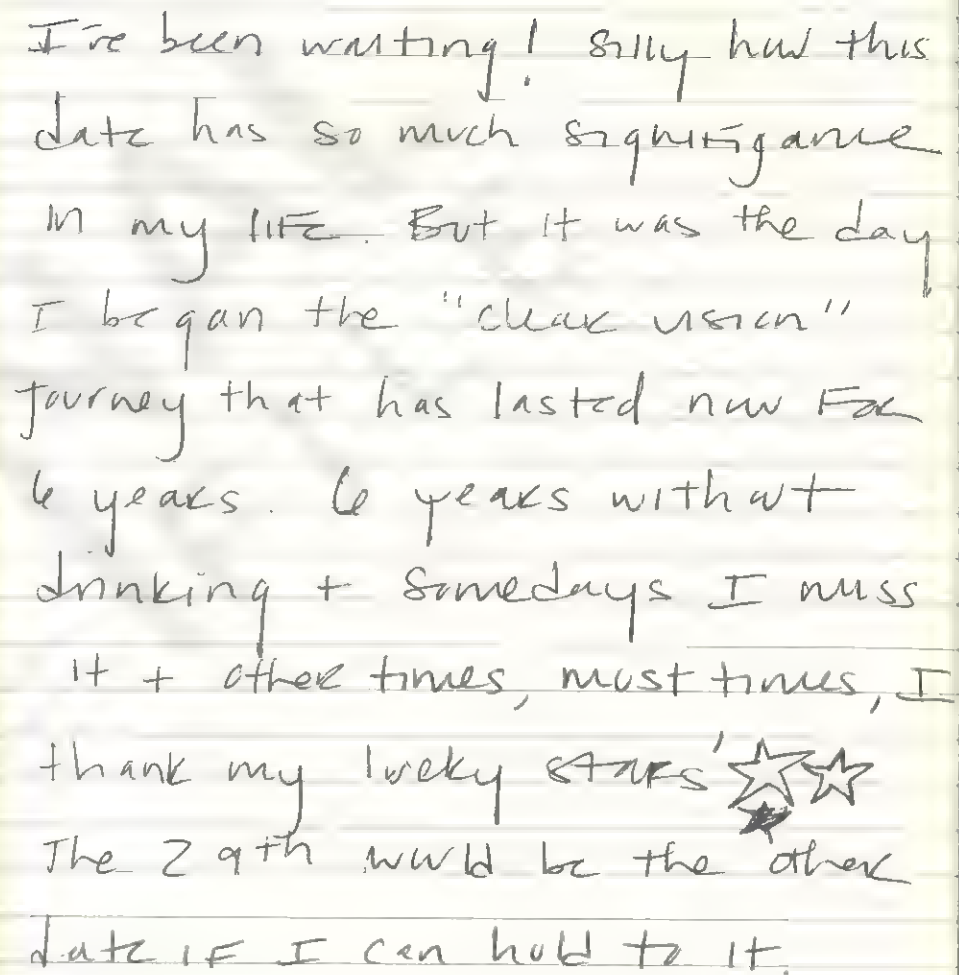 I've been waiting! Silly how this
date has so much signifigance
in my life. But it was the day
I began the "clear vision"
journey that has lasted now For
6 years. 6 years without
drinking + somedays I miss
it + other times, most times, I
thank my lucky stars'
The 29th would be the other
date iF I can hold to it.